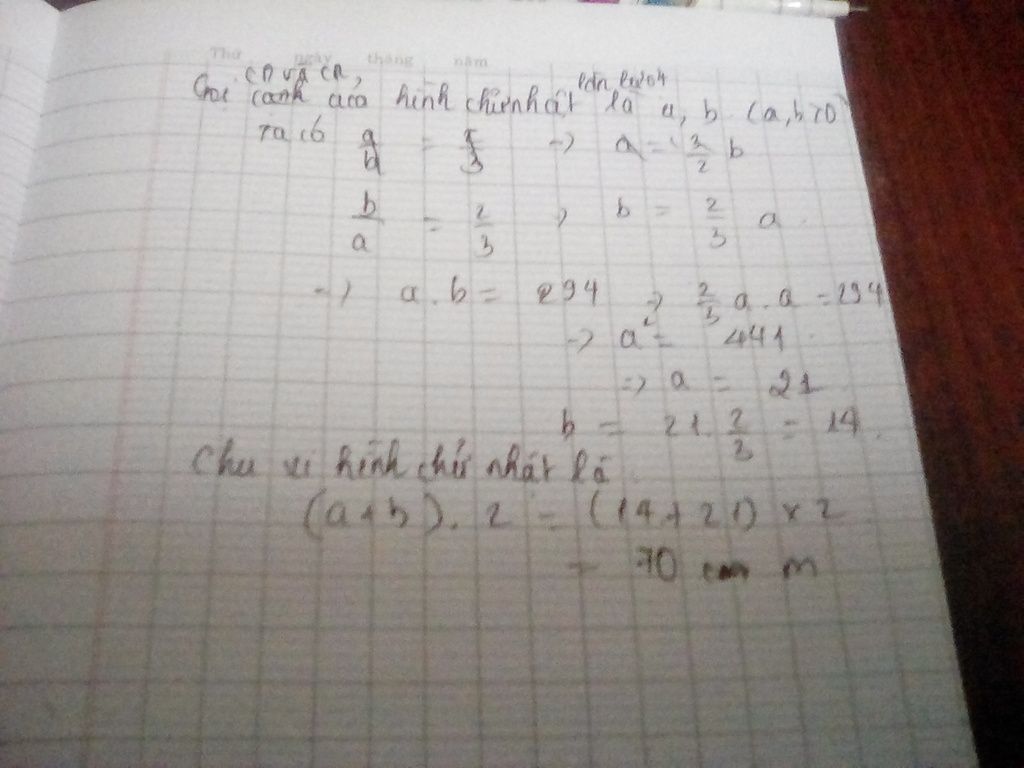 Thứ ngày tháng năm
CD và CR,
Gọi cạnh của hình chữ nhật lần lượt là a, b (a, b > 0
Ta có a/b = /3 -> a = 3/2 b
b/a = 2/3 => b = 2/3 a.
-> a . b = 294 => 2/3 a . a = 294
=> a² = 441.
=> a = 21
b = 21. 2/3 = 14.
Chu vi hình chữ nhật là
(a+b). 2 = (14 + 21) x 2
= 70 m